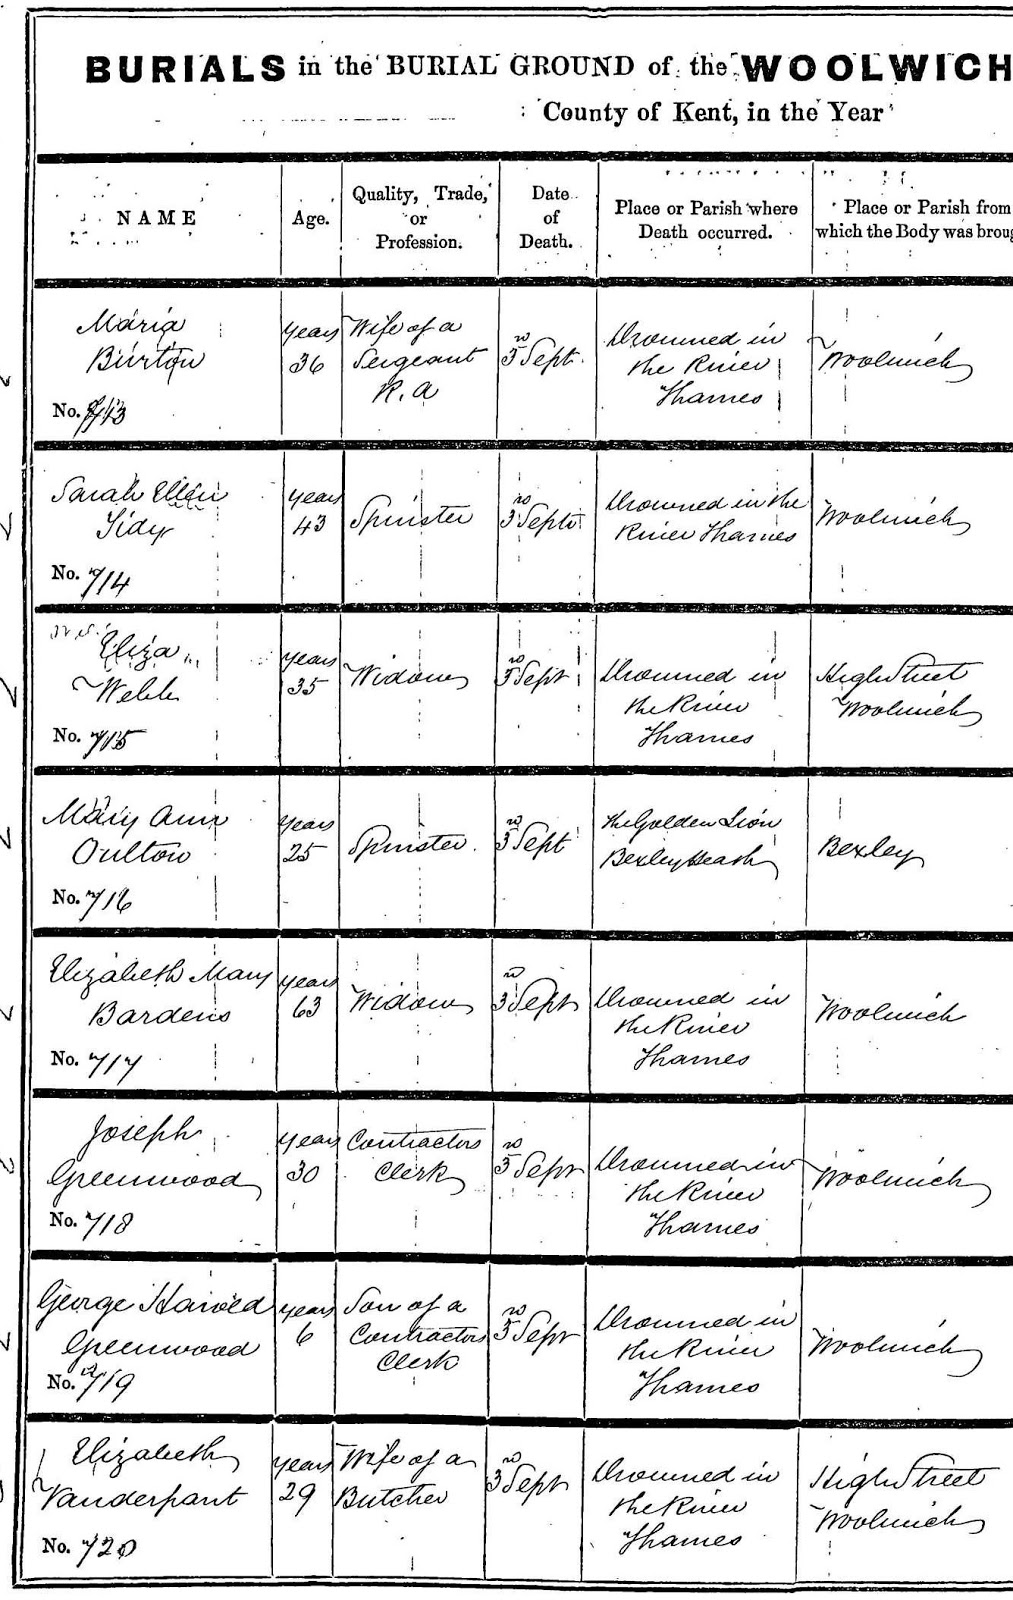 BURIALS in the BURIAL GROUND of the WOOLWICH
County of Kent, in the Year
NAME
Age.
Quality, Trade,
or
Profession.
Date
of
Death.
Place or Parish where
Death occurred.
Place or Parish from
which the Body was broug
Maria
Burton
No. 713
years
36
Wife of a
Sergeant
R. A
3rd Sept.
Drowned in
the River
Thames
Woolwich
Sarah Ellen
Tidy
No. 714
years
43
Spinster
3rd Septr
Drowned in the
River Thames
Woolwich
Eliza
Webb
No. 715
years
35
Widow
3rd Sept
Drowned in
the River
Thames
High Street
Woolwich
Mary Ann
Oulton
No. 716
years
25
Spinster
3rd Sept
the Golden Lion
Bexley Heath
Bexley
Elizabeth Mary
Bardens
No. 717
years
63
Widow
3rd Sept
Drowned in
the River
Thames
Woolwich
Joseph
Greenwood
No. 718
years
30
Contractors
Clerk
3rd Sept
Drowned in
the River
Thames
Woolwich
George Harold
Greenwood
No. 719
years
6
Son of a
Contractors
Clerk
3rd Sept
Drowned in
the River
Thames
Woolwich
Elizabeth
Vanderpant
No. 720
years
29
Wife of a
Butcher
3rd Sept
Drowned in
the River
Thames
High Street
Woolwich